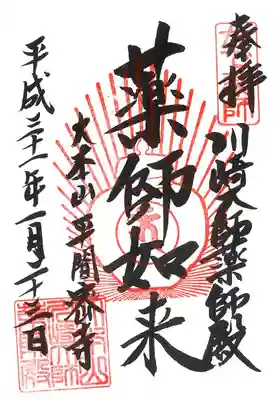 奉拝
川崎大師薬師殿
薬師如来
大本山 平間寺
平成二十一年一月二十三日